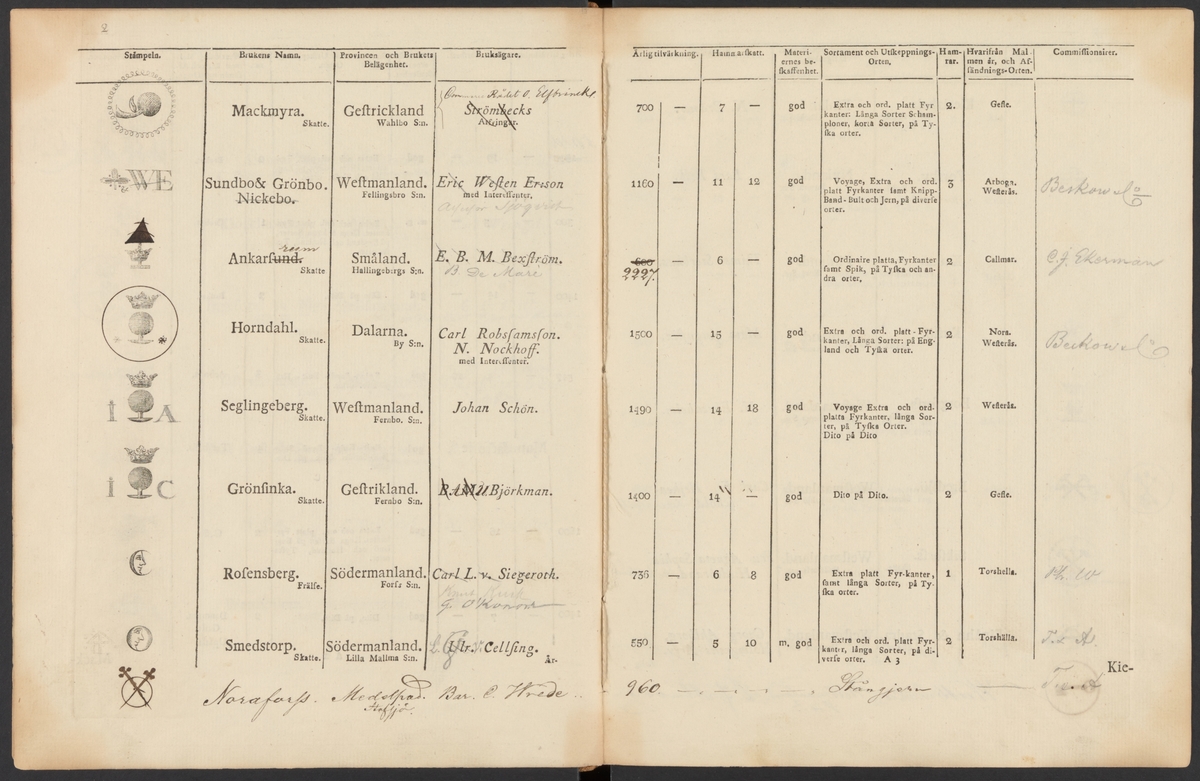 2
Stämpeln. Brukens Namn. Provincen och Brukets Belägenhet. Bruksägare.
WE
I A
I C
Mackmyra.
Skatte.
Gestrickland
Wahlbo S:n.
Rådet O. Elfbrincks
Strömbecks
Arfvingar.
Sundbo & Grönbo.
Nickebo.
Westmanland.
Fellingsbro S:n.
Eric Westen Ersson
med Interessenter.
Ankarsund.
reum
Skatte
Småland.
Hallingebergs S:n.
E. B. M. Bexström.
B De Maré
Horndahl.
Skatte.
Dalarna.
By S:n.
Carl Robsamsson.
N. Nockhoff.
med Interessenter.
Seglingeberg.
Skatte.
Westmanland.
Fernbo. S:n.
Johan Schön.
Grönsinka.
Skatte.
Gestrikland.
Fernbo S:n.
Björkman.
Rosensberg.
Frälse.
Södermanland.
Forss S:n.
Carl L. v. Siegeroth.
G. O'Konor
Smedstorp.
Skatte.
Södermanland.
Lilla Mallma S:n.
Ulr. Cellsing.
År-
Noraforss. Medelpad. Bar. C. Wrede
Årlig tilvärkning. Hammarskatt. Materiernes beskaffenhet. Sortament och Utskeppnings-Orten. Hamrar. Hvarifrån Malmen är, och Afsändnings-Orten. Commissionairer.
700 — 7 — god
Extra och ord. platt Fyr
kanter: Långa Sorter Schamploner, korta Sorter, på Tyska orter.
2.
Gefle.
1160 — 11 12 god
Voyage, Extra och ord.
platt Fyrkanter samt Knipp-
Band-Bult och Jern, på diverse
orter.
3
Arboga.
Westerås.
Beskow & Co
600 — 6 — god
2227.
Ordinaire platta, Fyrkanter
samt Spik, på Tyska och andra orter.
2
Callmar.
C. J. Ekerman
1500 — 15 — god
Extra och ord. platt-Fyrkanter, Långa Sorter: på England och Tyska orter.
2
Nora.
Westerås.
Beskow & Co
1490 — 14 18 god
Voyage Extra och ord.
platta Fyrkanter, långa Sorter, på Tyska Orter.
Dito på Dito
2
Westerås.
1400 — 14 — god
Dito på Dito.
2
Gefle.
736 — 6 8 god
Extra platt Fyr-kanter,
samt långa Sorter, på Tyska orter.
1
Torshella.
550 — 5 10 m. god
Extra och ord. platt Fyrkanter, långa Sorter, på diverse orter. A 3
2
Torshälla.
Kie-
960. Stångjern